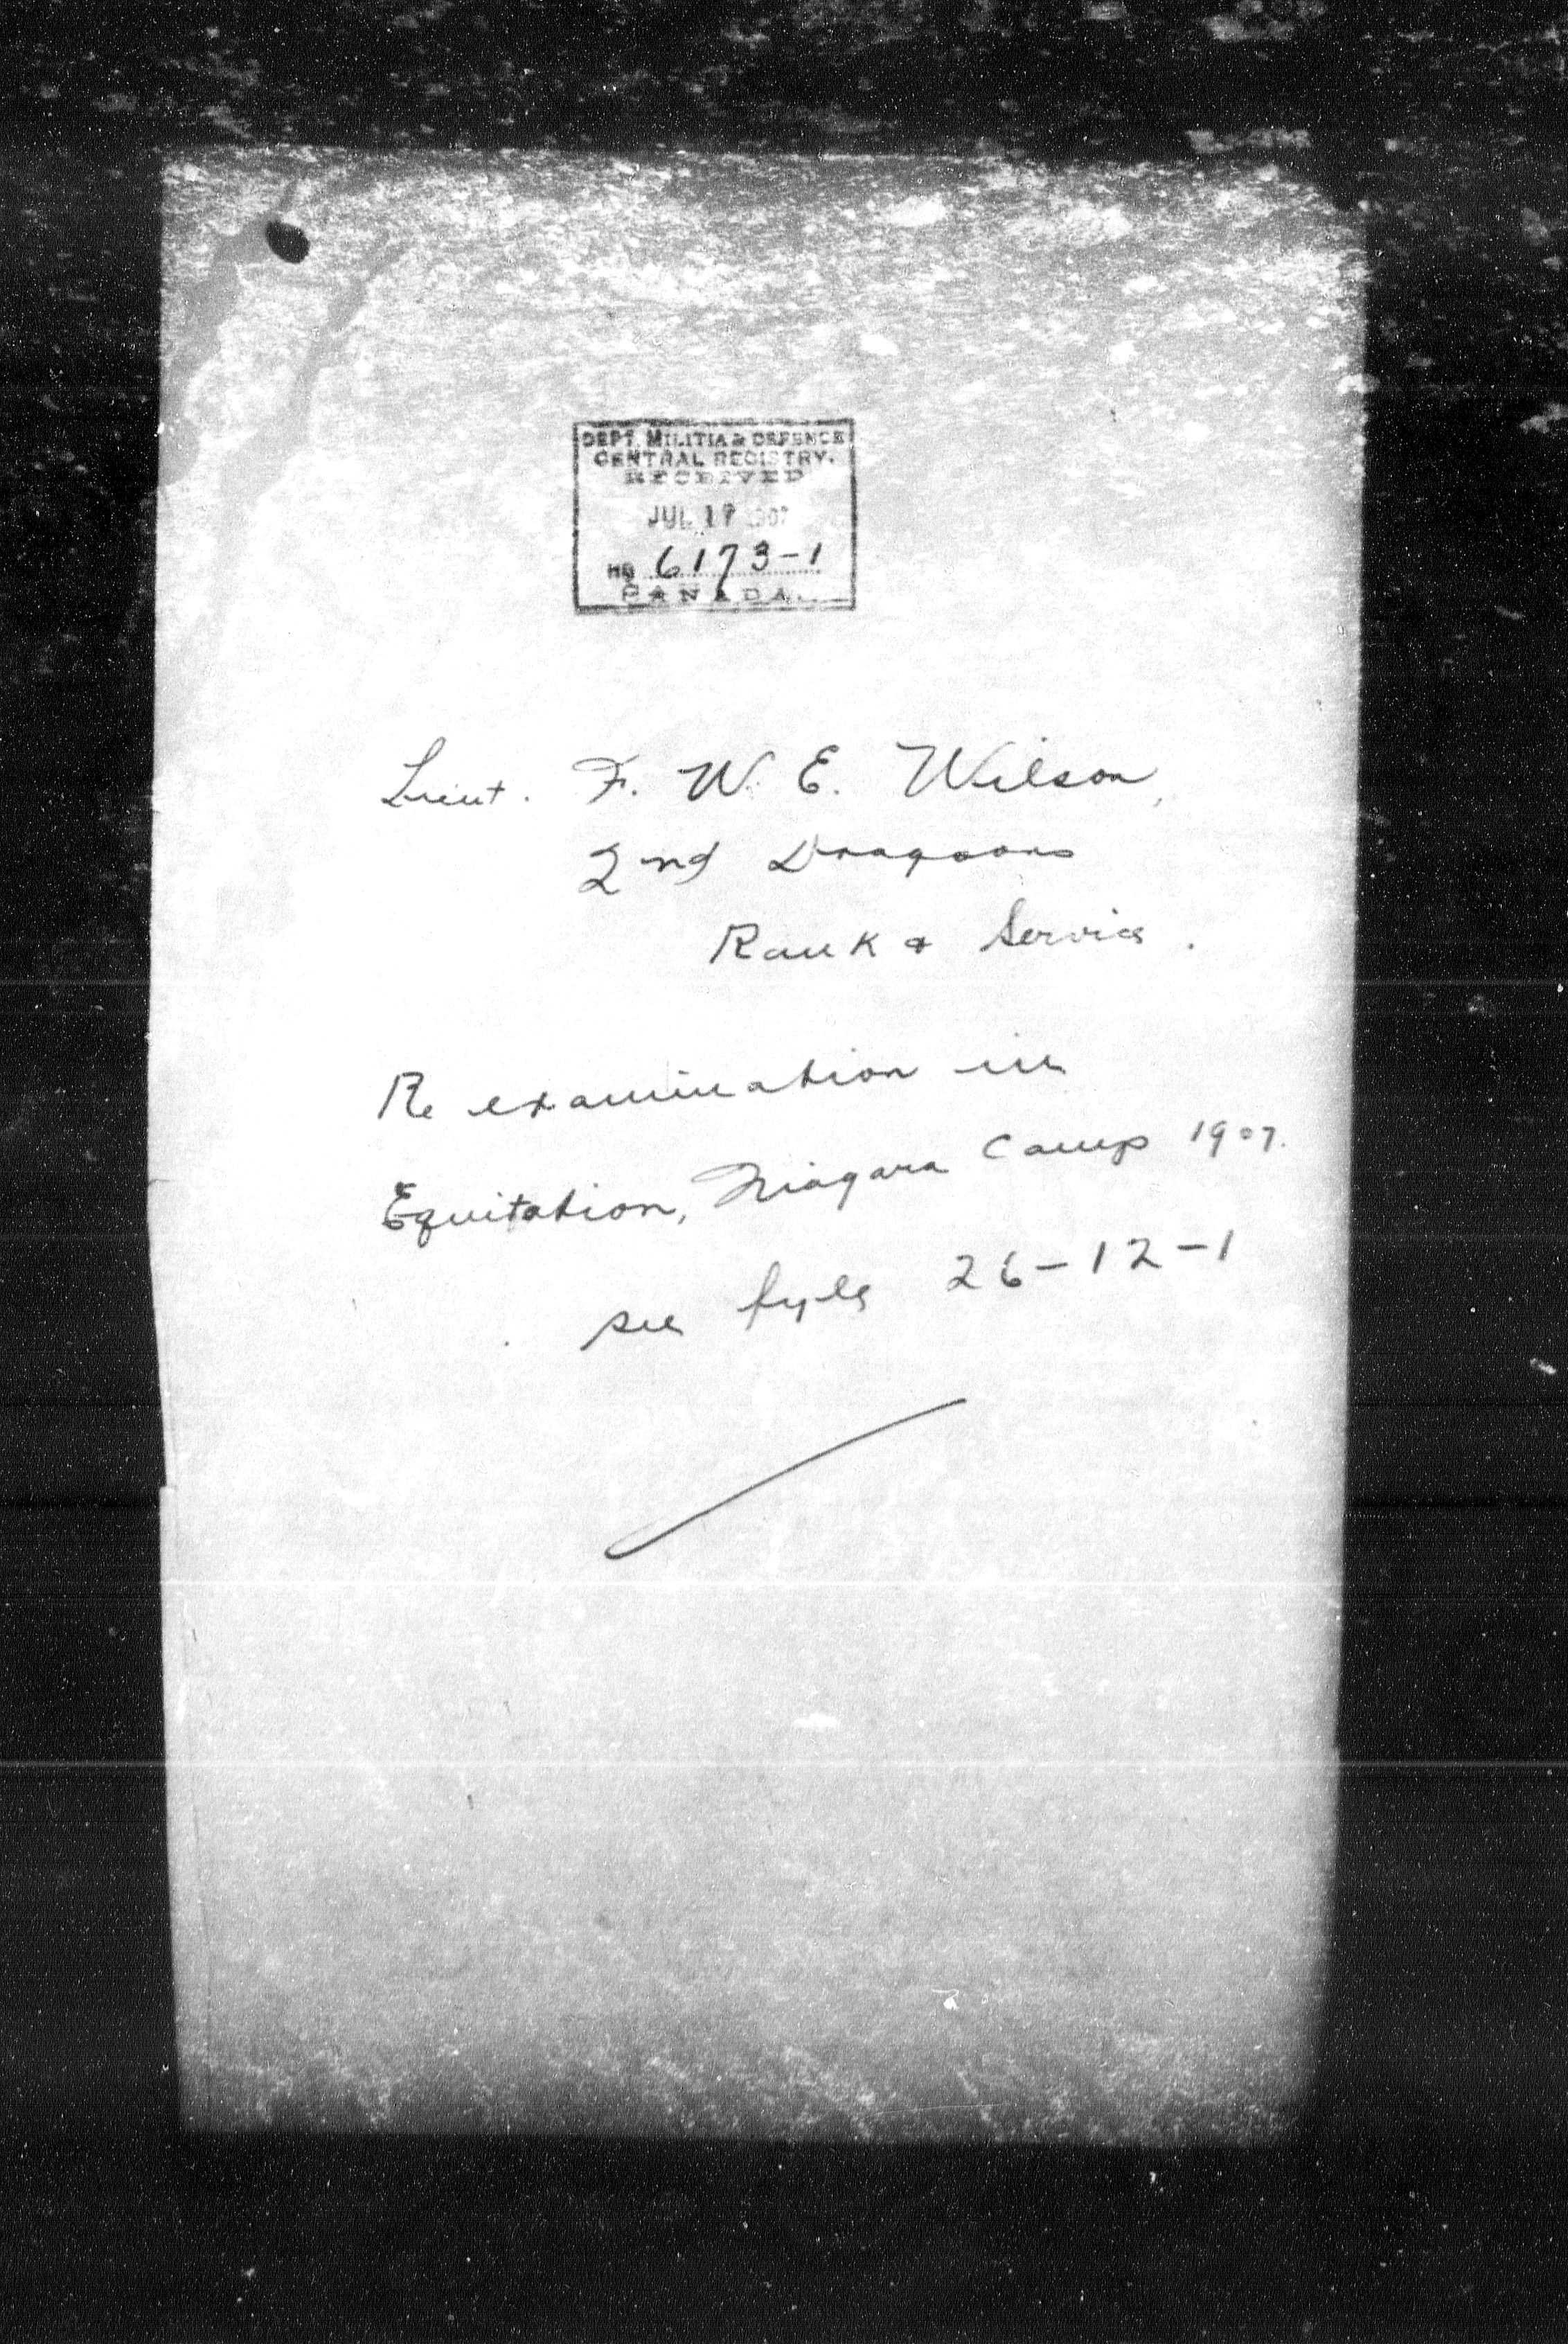 DEPT. MILITIA & DEFENCE
CENTRAL REGISTRY.
RECEIVED
JUL 17 1907
HQ 6173-1
CANADA.
Lieut. F. W. E. Wilson,
2nd Dragoons
Rank & Service.
Re examination in
Equitation, Niagara Camp 1907.
see fyle 26-12-1